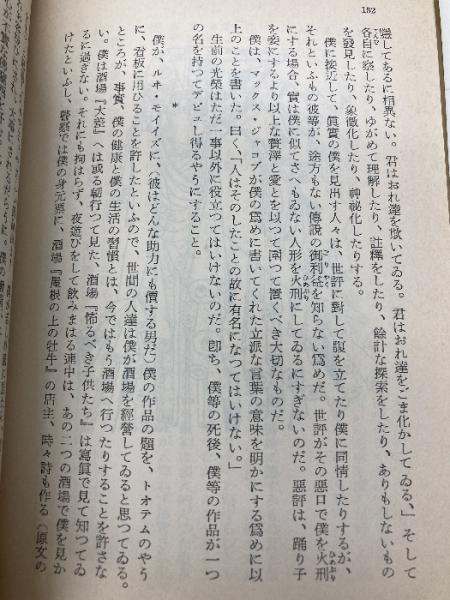 152
隱してあるに相異ない。君はおれ達を欺いてゐる。君はおれ達をごま化かしてゐる、」そして
各自に察したり、ゆがめて理解したり、註釋をしたり、餘計な探索をしたり、ありもしないもの
を發見したり、象徵化したり、神祕化したりする。
僕に接近して、眞實の僕を見出す人々は、世評に對して腹を立てたり僕に同情したりするが、
それといふもの彼等が、途方もない傳說の御利益を知らない爲めだ。世評がその惡口で僕を火刑
にする場合、實は僕に似てさへもゐない人形を火刑にしてゐるにすぎないのだ。惡評は、踊り子
を姿にするより以上な贅澤と愛とを以つて圍つて置くべき大切なものだ。
僕は、マックス・ジャコブが僕の爲めに書いてくれた立派な言葉の意味を明かにする爲めに以
上のことを書いた。曰く、「人はそのしたことの故に有名になつてはいけない。」
生前の光榮はただ一事以外に役立つてはいけないのだ。卽ち、僕等の死後、僕等の作品が一つ
の名を持つてデビュし得るやうにすること。
*
僕が、ルネ・モイイズに、(彼はどんな助力にも價する男だ)僕の作品の題を、トオテムのやう
に、看板に用ひることを許したといふので、世間の人達は僕が酒場を經營してゐると思つてゐる。
ところが、事實、僕の健康と僕の生活の習慣とは、今ではもう酒場へ行つたりすることを許さな
い。僕は酒場『大差』へは或る朝行つて見た、酒場『怖るべき子供たち』は寫眞で見て知つてゐ
るに過ぎない。それにも拘はらず、夜遊びをして飮みまはる連中は、あの二つの酒場で僕を見か
けたといふし、警察では僕の身元票に、酒場『屋根の上の牡牛』の店主、時々詩も作る(原文の